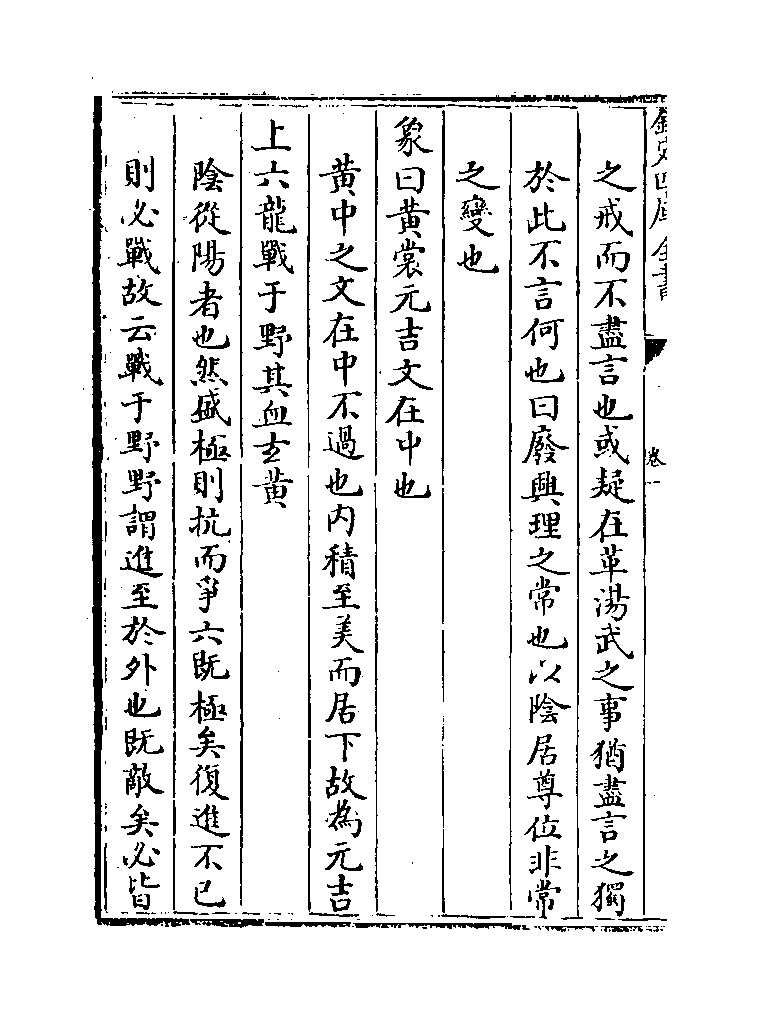 欽定四庫全書
卷一
之戒而不盡言也或疑在革湯武之事猶盡言之獨
於此不言何也曰廢興理之常也以陰居尊位非常
之變也
象曰黃裳元吉文在中也
黃中之文在中不過也內積至美而居下故為元吉
上六龍戰于野其血玄黃
陰從陽者也然盛極則抗而爭六既極矣復進不已
則必戰故云戰于野野謂進至於外也既敵矣必皆